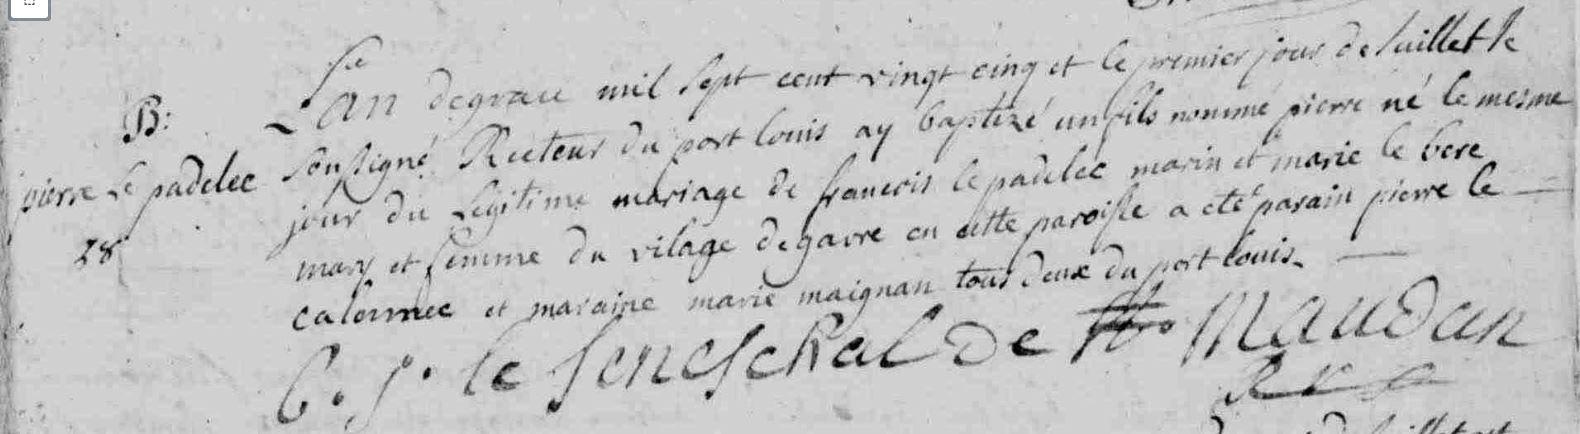 B:
pierre Le padelec
28
L'an de grace mil sept cent vingt cinq et le premier jour de Juillet Je
soussigné Recteur du port louis ay baptizé un fils nommé pierre né le mesme
jour du Légitime mariage de francois le padelec marin et marie le bere
mary et femme du vilage de gavre en cette paroisse a eté parain pierre le
calonnec et maraine marie maignan tous deux du port louis
C. J. le seneschal de Maudan
Rr